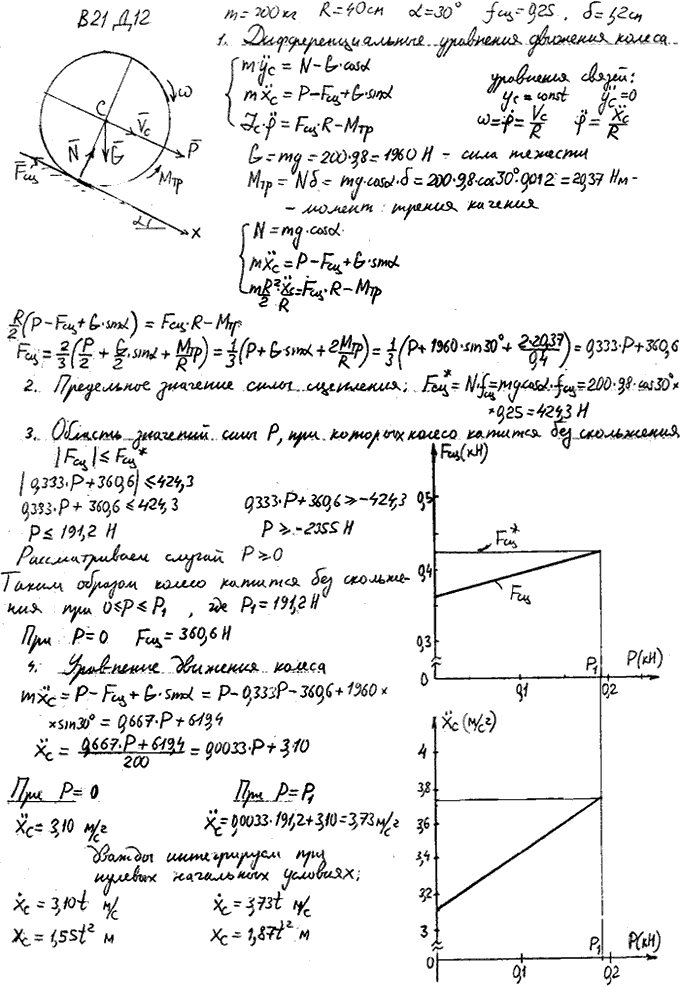 В21 Д12
m = 200 кг R = 40 см α = 30° fсц = 0,25, δ = 1,2 см
1. Дифференциальные уравнения движения колеса
mÿc = N - G·cosα
mẍc = P - Fсц + G·sinα
Jc·φ̈ = Fсц·R - Mтр
уравнения связей:
yc = const ÿc = 0
ω = φ̇ = Vc/R φ̈ = ẍc/R
G = mg = 200·9,8 = 1960 Н - сила тяжести
Mтр = Nδ = mg·cosα·δ = 200·9,8·cos30°·0,012 = 20,37 Нм -
- момент трения качения
N = mg·cosα
mẍc = P - Fсц + G·sinα
mR²/2·ẍc/R = Fсц·R - Mтр
C ω V̄c P̄ N̄ Ḡ F̄сц Mтр α x
R/2(P - Fсц + G·sinα) = Fсц·R - Mтр
Fсц = 2/3(P/2 + G/2·sinα + Mтр/R) = 1/3(P + G·sinα + 2Mтр/R) = 1/3(P + 1960·sin30° + 2·20,37/0,4) = 0,333·P + 360,6
2. Предельное значение силы сцепления; Fсц* = N·fсц = mgcosα·fсц = 200·9,8·cos30°×
×0,25 = 424,3 Н
3. Область значений силы P, при которых колесо катится без скольжения
|Fсц| ≤ Fсц*
|0,333·P + 360,6| ≤ 424,3
0,333·P + 360,6 ≤ 424,3 0,333·P + 360,6 ≥ -424,3
P ≤ 191,2 Н P ≥ -2355 Н
Рассматриваем случай P ≥ 0
Таким образом колесо катится без скольже-
ния при 0 ≤ P ≤ P1, где P1 = 191,2 Н
При P = 0 Fсц = 360,6 Н
4. Уравнение движения колеса
mẍc = P - Fсц + G·sinα = P - 0,333P - 360,6 + 1960×
×sin30° = 0,667·P + 619,4
ẍc = (0,667·P + 619,4)/200 = 0,0033·P + 3,10
При P = 0 При P = P1
ẍc = 3,10 м/с² ẍc = 0,0033·191,2 + 3,10 = 3,73 м/с²
Дважды интегрируем при
нулевых начальных условиях;
ẋc = 3,10t м/с ẋc = 3,73t м/с
xc = 1,55t² м xc = 1,87t² м
Fсц(кН)
0,5
Fсц*
0,4
Fсц
0,3
P1 P(кН)
0 0,1 0,2
ẍc (м/с²)
4
3,8
3,6
3,4
3,2
3
P1 P(кН)
0 0,1 0,2